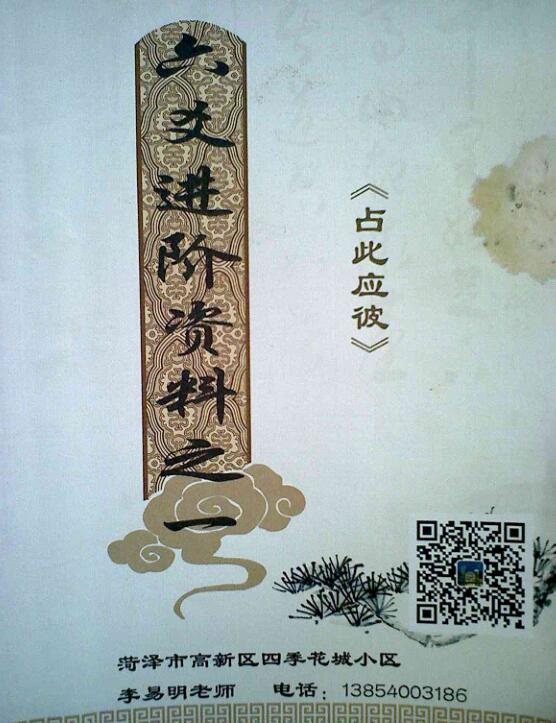 六爻进阶资料之一
《占此应彼》
菏泽市高新区四季花城小区
李易明老师 电话：13854003186